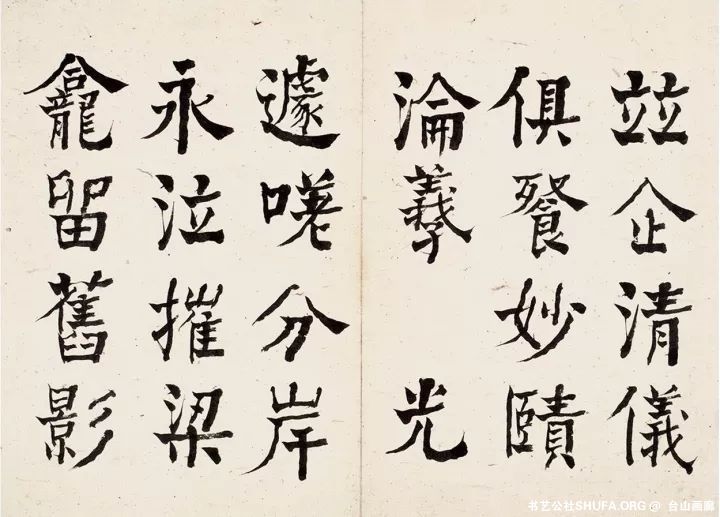 竝企清儀
俱餐妙賾
淪羲 光
遽嗟分岸
永泣摧梁
龕留舊影
书艺公社SHUFA.ORG @ 台山画廊